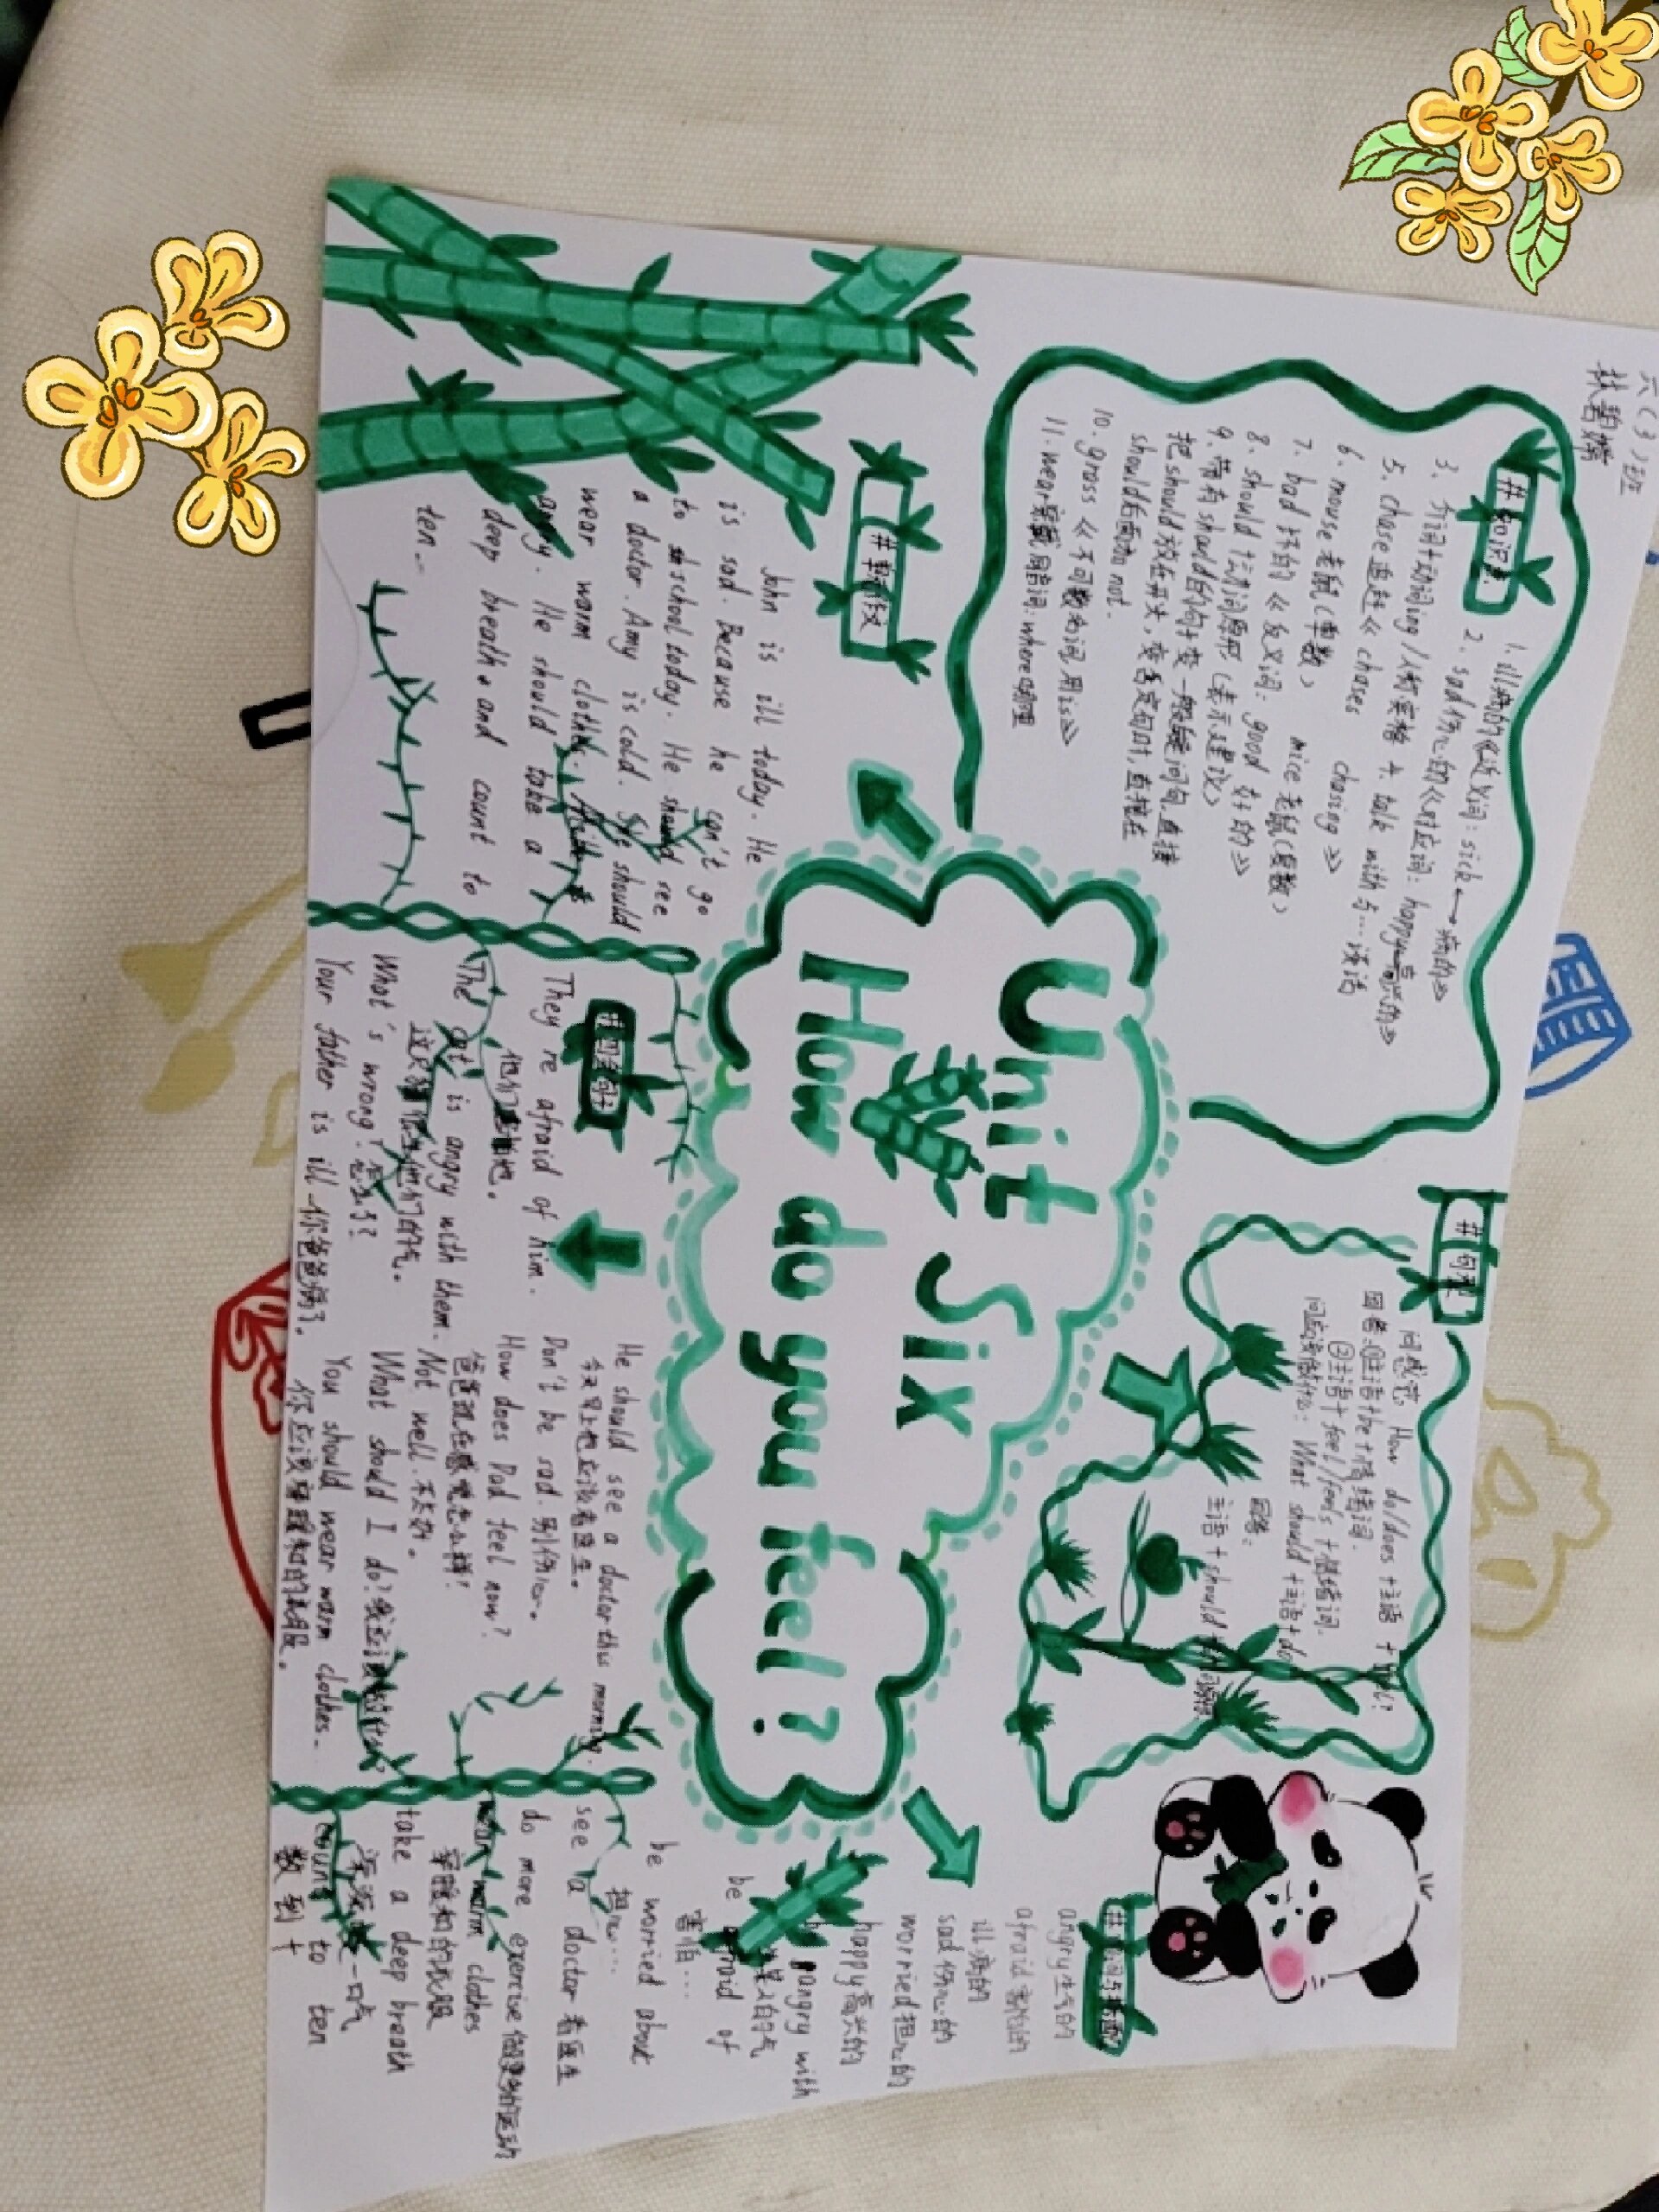 六(3)班
#知识点
1. ill病的《近义词: sick→病的》
2. sad伤心的《对应词: happy高兴的》
3. 介词+动词ing/人称宾格 4. talk with与…谈话
5. chase追赶《chases chasing》
6. mouse老鼠(单数) mice老鼠(复数)
7. bad坏的《反义词: good好的》
8. should+动词原形(表示建议)
9. 带有should的句子变一般疑问句,直接
把should放在开头,变否定句时,直接在
should后面加not.
10. grass《不可数名词用is》
11. wear穿戴 同音词: where哪里
#句型
问感觉: How do/does+主语+
回答:①主语+be+情绪词.
②主语+feel/feels+情绪词.
问应该做什么: What should+主语+do
回答:
主语+should+
Unit Six
How do you feel?
John is ill today. He
is sad. Because he can't go
to school today. He should see
a doctor. Amy is cold. She should
wear warm clothes.
angry. He should take a
deep breath and count to
ten.
#四会句子
They're afraid of him.
他们害怕他。
The cat is angry with them.
这只猫很生他们的气。
What's wrong?怎么了?
Your father is ill.你爸爸病了。
He should see a doctor this morning.
今天早上他应该看医生。
Don't be sad.别伤心。
How does Dad feel now?
爸爸现在感觉怎么样?
Not well.不太好。
What should I do?
You should wear warm clothes.
你应该穿暖和的衣服。
angry生气的
afraid害怕的
ill病的
sad伤心的
worried担心的
happy高兴的
be angry with
be afraid of
害怕…
be worried about
担心…
see a doctor看医生
do more exercise做更多的运动
wear warm clothes
穿暖和的衣服
take a deep breath
深深吸一口气
count to ten
数到十